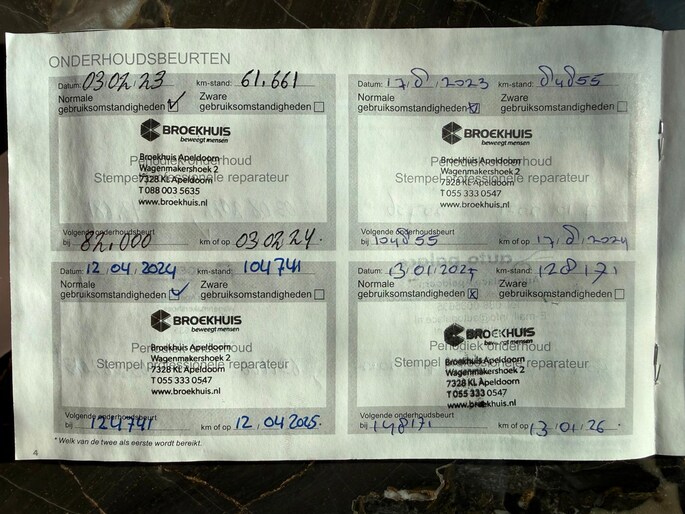 ONDERHOUDSBEURTEN
Datum: 03.02.23 km-stand: 61.661
Normale gebruiksomstandigheden
Zware gebruiksomstandigheden
BROEKHUIS
beweegt mensen
Periodiek onderhoud
Stempel professionele reparateur
Broekhuis Apeldoorn
Wagenmakershoek 2
7328 KL Apeldoorn
T 088 003 5635
www.broekhuis.nl
Volgende onderhoudsbeurt
bij 82.000 km of op 03.02.24.
Datum: 17, 8, 2023 km-stand: 84855
Normale gebruiksomstandigheden
Zware gebruiksomstandigheden
BROEKHUIS
beweegt mensen
Periodiek onderhoud
Stempel professionele reparateur
Broekhuis Apeldoorn
Wagenmakershoek 2
7328 KL Apeldoorn
T 055 333 0547
www.broekhuis.nl
Volgende onderhoudsbeurt
bij 104855 km of op 17, 8, 2024
Datum: 12.04.2024 km-stand: 104741
Normale gebruiksomstandigheden
Zware gebruiksomstandigheden
BROEKHUIS
beweegt mensen
Periodiek onderhoud
Stempel professionele reparateur
Broekhuis Apeldoorn
Wagenmakershoek 2
7328 KL Apeldoorn
T 055 333 0547
www.broekhuis.nl
Volgende onderhoudsbeurt
bij 124741 km of op 12.04.2025.
Datum: 13.01.2025 km-stand: 128171
Normale gebruiksomstandigheden
Zware gebruiksomstandigheden
BROEKHUIS
beweegt mensen
Periodiek onderhoud
Stempel professionele reparateur
Broekhuis Apeldoorn
Wagenmakershoek 2
7328 KL Apeldoorn
T 055 333 0547
www.broekhuis.nl
Volgende onderhoudsbeurt
bij 148171 km of op 13.01.26.
* Welk van de twee als eerste wordt bereikt.
4